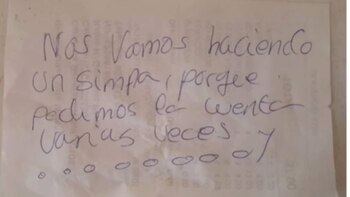 Nos vamos haciendo
un simpa, porque
pedimos la cuenta
varias veces y
.........